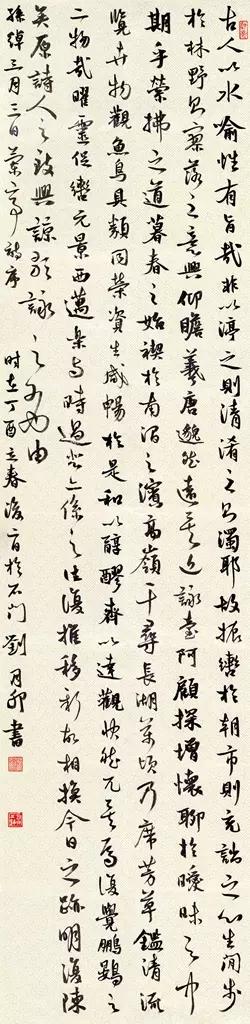 古人以水喻性有旨哉非以渟之則清淆之則濁耶故振轡於朝市則充詘之心生閒步
於林野則寥落之意興仰瞻羲唐邈然遠矣近詠臺阿顧探增懷聊於曖昧之中
期乎榮拂之道暮春之始禊於南澗之濱高嶺千尋長湖萬頃乃席芳草鑑清流
覽卉物觀魚鳥具類同榮資生咸暢於是和以醇醪齊以達觀快然兀矣焉復覺鵬鷃之
二物哉曜靈促轡元景西邁樂與時過悲亦系之往復推移新故相換今日之跡明復陳
矣原詩人之致興諒歌詠之有由
孫綽三月三日蘭亭詩序 時在丁酉立春後二日於石門劉月卯書